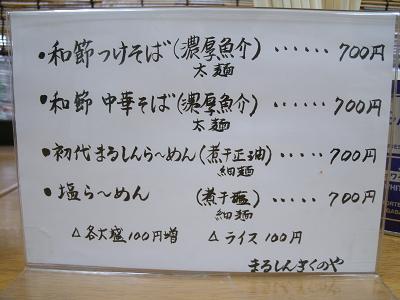 ・和節つけそば(濃厚魚介)……700円
太麺
・和節 中華そば(濃厚魚介)……700円
太麺
・初代まるしんら〜めん(煮干正油)……700円
細麺
・塩ら〜めん (煮干塩)……700円
細麺
△各大盛100円増 △ライス100円
まるしんきくのや